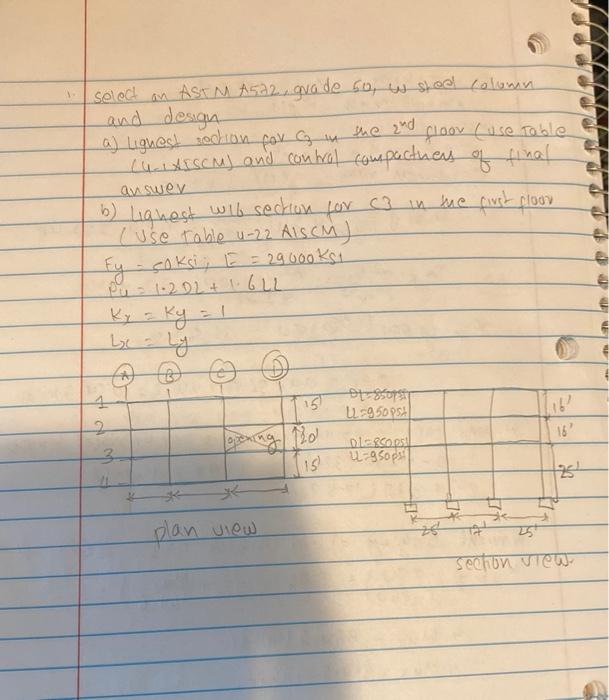 1. select an ASTM A572, grade 50, w steel column
and design
a) lighest section for C3 in the 2nd floor (use Table
(4-1 AISCM) and control compactness of final
answer
b) lighest W16 section for C3 in the first floor
(Use Table 4-22 AISCM)
Fy = 50Ksi; E = 29000Ksi
Pu = 1.2DL + 1.6LL
Kx = Ky = 1
Lx = Ly
A B C D
1
2
3
4
opening
15'
20'
15'
plan view
DL=850psf
LL=950psf
DL=850psf
LL=950psf
16'
16'
25'
25' 17' 25'
section view